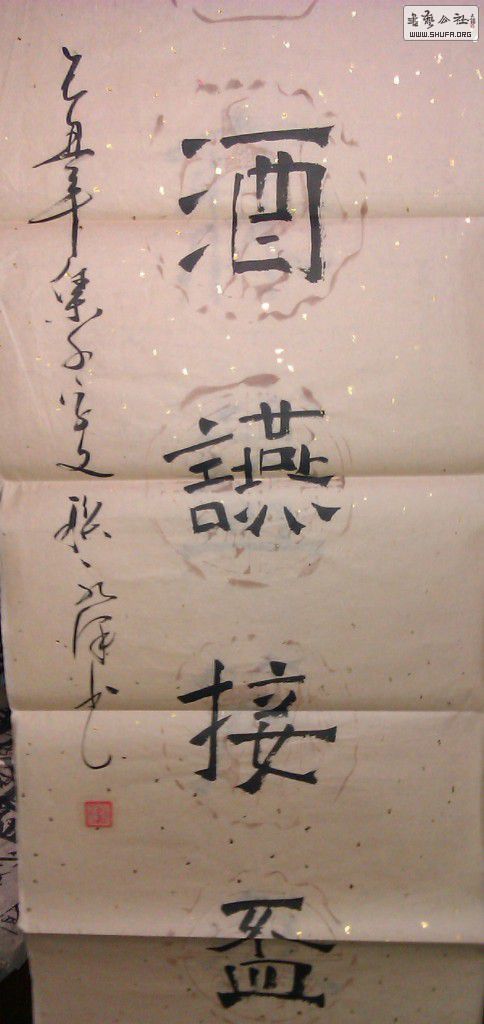 書藝公社
WWW.SHUFA.ORG
酒讌接盃
己丑年集千字文永書